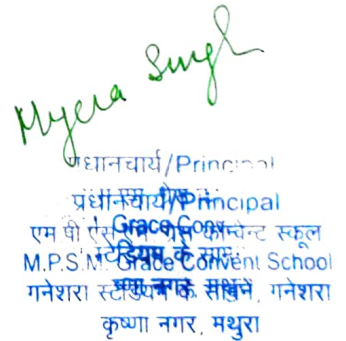 Myera Singh
प्रधानचार्य/Principal
प्रधानचार्य/Principal
Grace Con
एम पी एस एम ग्रेस कॉन्वेन्ट स्कूल
स्टेडियम के साम
M.P.S.M. Grace Convent School
गनेशरा स्टेडियम के सामने, गनेशरा
कृष्णा नगर, मथुरा
कृष्णा नगर, मथुरा